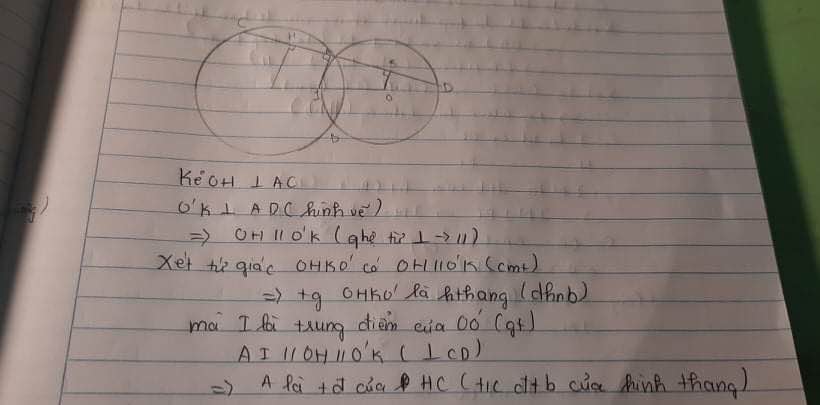 C H A K D
I O
B
Kẻ OH ⊥ AC
O'K ⊥ AD (hình vẽ)
=> OH // O'K (qhệ từ ⊥ → //)
Xét tứ giác OHKO' có OH // O'K (cmt)
=> tg OHKO' là hthang (dhnb)
mà I là trung điểm của OO' (gt)
AI // OH // O'K ( ⊥ CD)
=> A là tđ của HC (t/c đtb của hình thang)